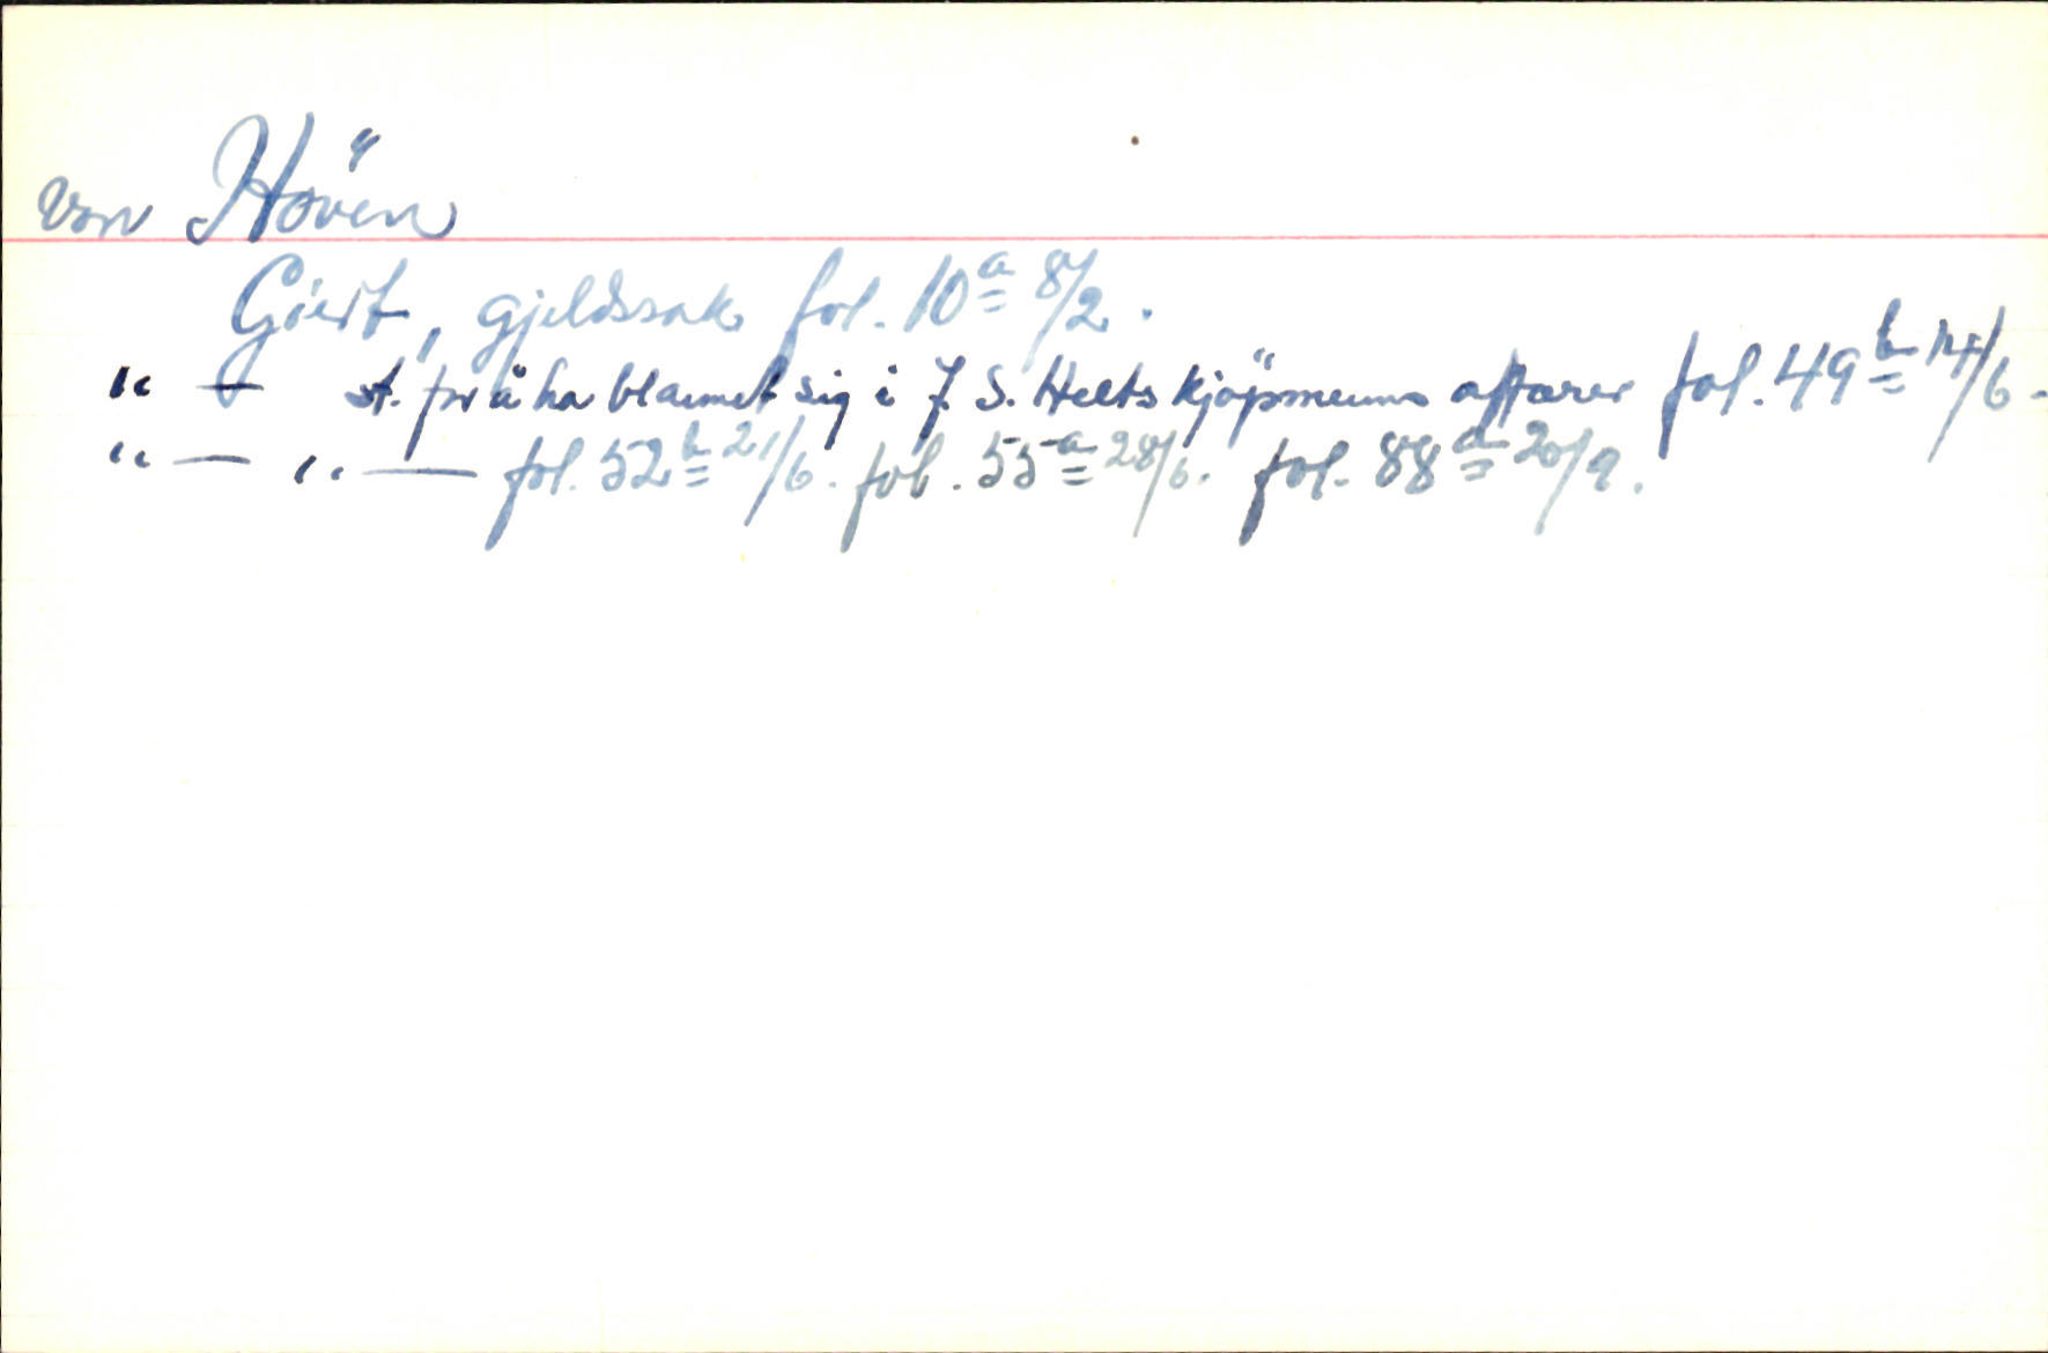 von Höven
Giert, gjeldssak fol. 10a 8/2.
" — st. for å ha blamet sig i J. S. Heltskjöpmenns affærer fol. 49b 14/6.
" — " — fol. 52b 21/6. fol. 55a 28/6. fol. 88a 20/9.